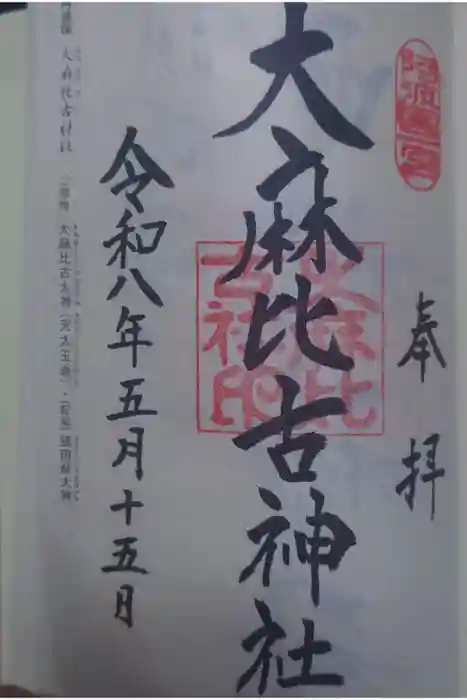 奉拝
阿波國一宮
大麻比古神社
大麻比古社印
令和八年五月十五日
大麻比古神社
大麻比古大神(天太玉命)・
猿田彦大神